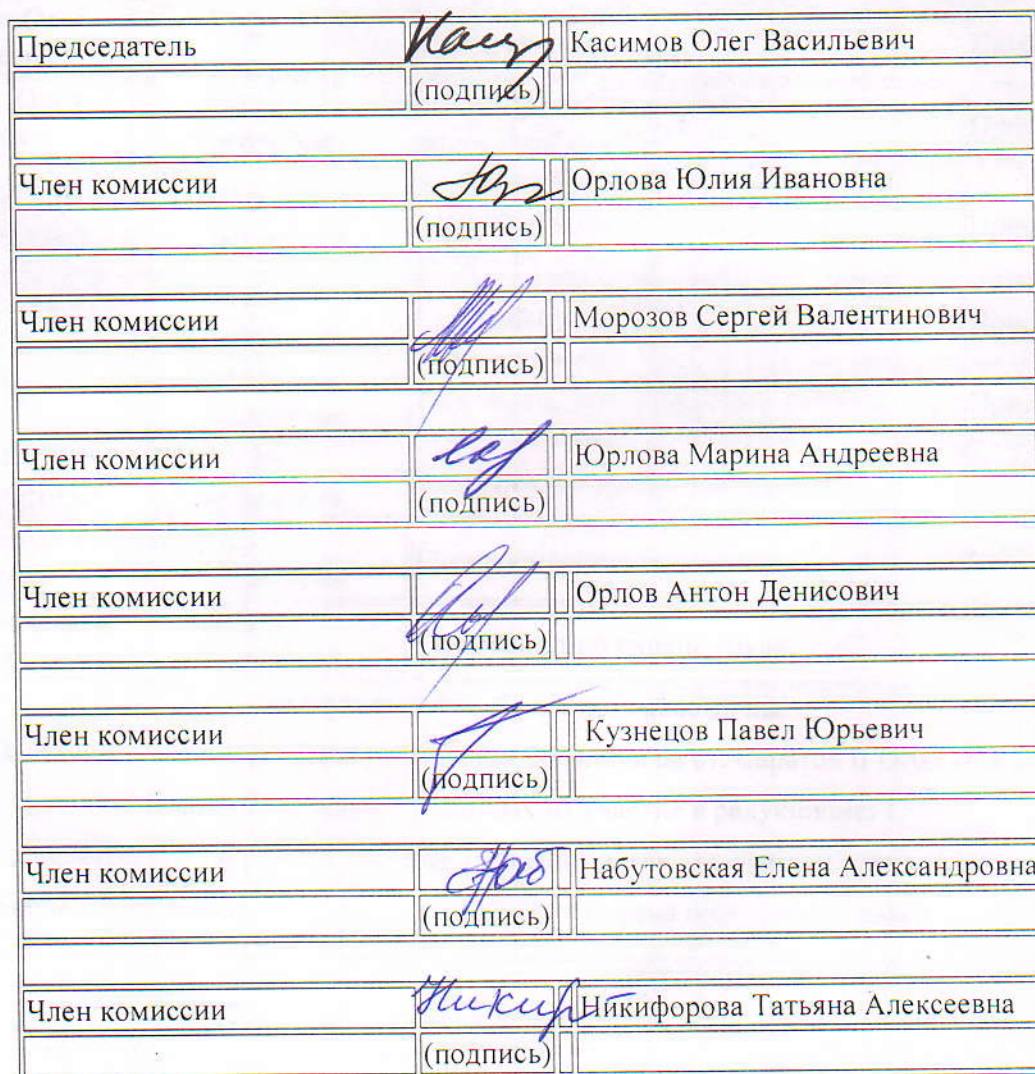 Председатель Касимов Олег Васильевич
(подпись)
Член комиссии Орлова Юлия Ивановна
(подпись)
Член комиссии Морозов Сергей Валентинович
(подпись)
Член комиссии Юрлова Марина Андреевна
(подпись)
Член комиссии Орлов Антон Денисович
(подпись)
Член комиссии Кузнецов Павел Юрьевич
(подпись)
Член комиссии Набутовская Елена Александровна
(подпись)
Член комиссии Никифорова Татьяна Алексеевна
(подпись)